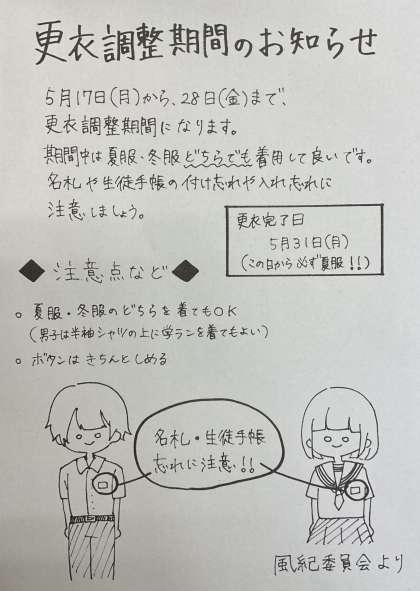 更衣調整期間のお知らせ
5月17日(月)から、28日(金)まで、
更衣調整期間になります。
期間中は夏服・冬服どちらでも着用して良いです。
名札や生徒手帳の付け忘れや入れ忘れに
注意しましょう。
更衣完了日
5月31日(月)
(この日から必ず夏服!!)
◆注意点など◆
○ 夏服・冬服のどちらを着てもOK
(男子は半袖シャツの上に学ランを着てもよい)
○ ボタンはきちんとしめる
名札・生徒手帳
忘れに注意!!
風紀委員会より